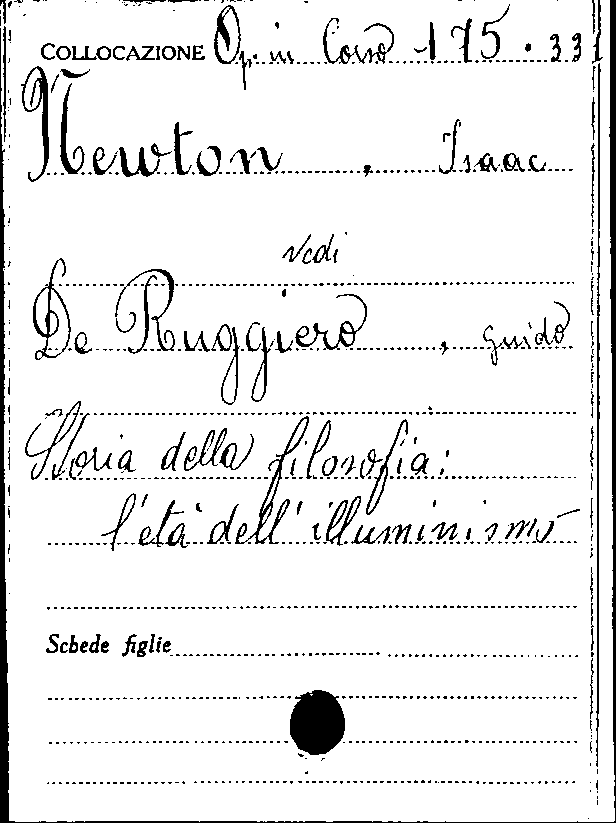 COLLOCAZIONE Op. in Corso 175.331
Newton, Isaac
Vedi
De Ruggiero, Guido
Storia della filosofia:
l'età dell'illuminismo
Schede figlie